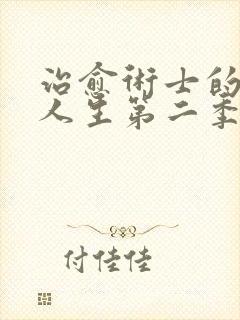 治愈術士的
人生第二季
付佳佳